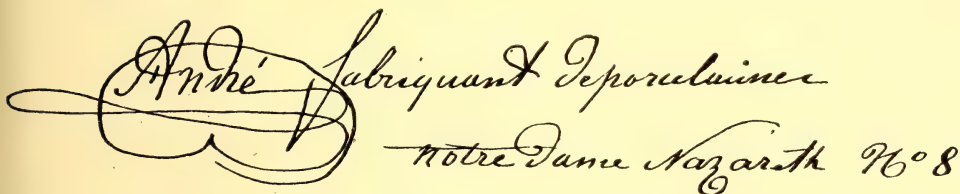 André fabriquant deporcelaines
notre Dame Nazareth No 8